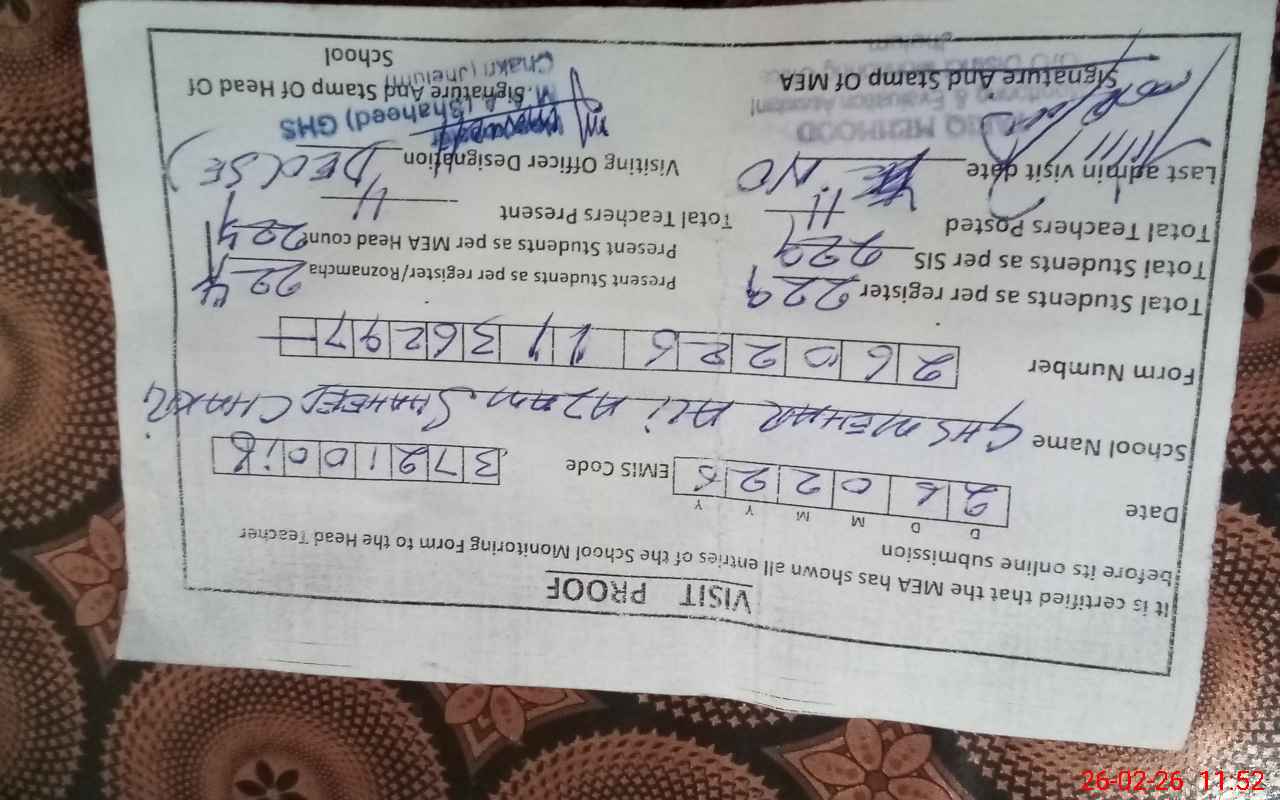 VISIT PROOF
It is certified that the MEA has shown all entries of the School Monitoring Form to the Head Teacher
before its online submission
D D M M Y Y
Date 26 02 26 EMIS Code 37210018
School Name GHS MEHAR ALI AZAM SHAHEED CHAKRI
Form Number 2 6 0 2 2 6 1 1 3 6 2 9 7
Total Students as per register 229 Present Students as per register/Roznamcha 224
Total Students as per SIS 229 Present Students as per MEA Head count 224
Total Teachers Posted 11 Total Teachers Present 11
Last admin visit date NO Visiting Officer Designation
TARIQ MEHMOOD
Monitoring & Evaluation Assistant
Signature And Stamp Of MEA
(Shaheed) GHS
Chakri (Jhelum)
Signature And Stamp Of Head Of
School
26-02-26 11:52